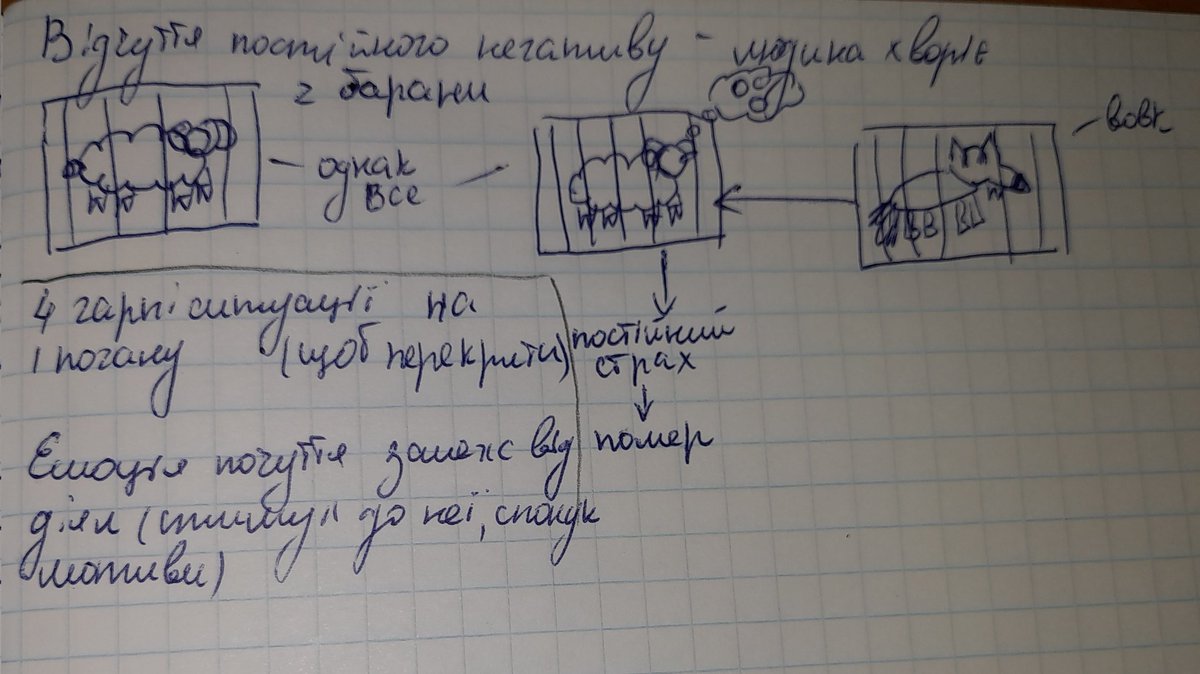 Відчуття постійного негативу - людина хворіє
2 барани
- однак
все -
- вовк
4 гарні ситуації на
1 погану (щоб перекрити)
постійний
страх
помер
Емоція почуття залеж від
діял (стимул до неї, спонук
мотиви)